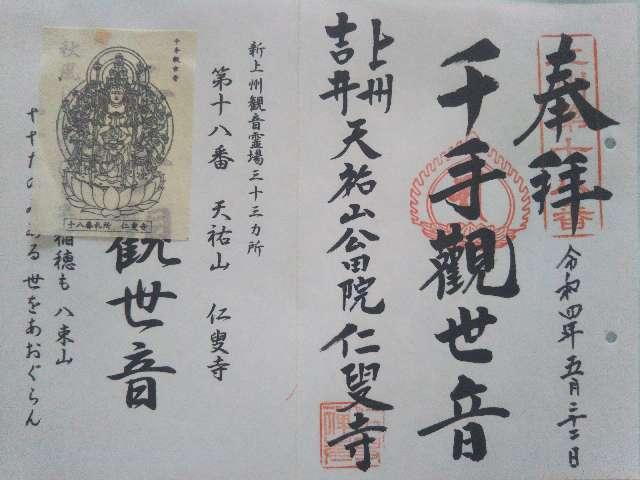 奉拝
令和四年五月二十二日
千手觀世音
上州
吉井
天祐山公田院仁叟寺
新上州観音霊場三十三カ所
第十八番 天祐山 仁叟寺
觀世音
稲穂も 八束山
世をあおぐらん
千手観世音
秋風
十八番札所 仁叟寺